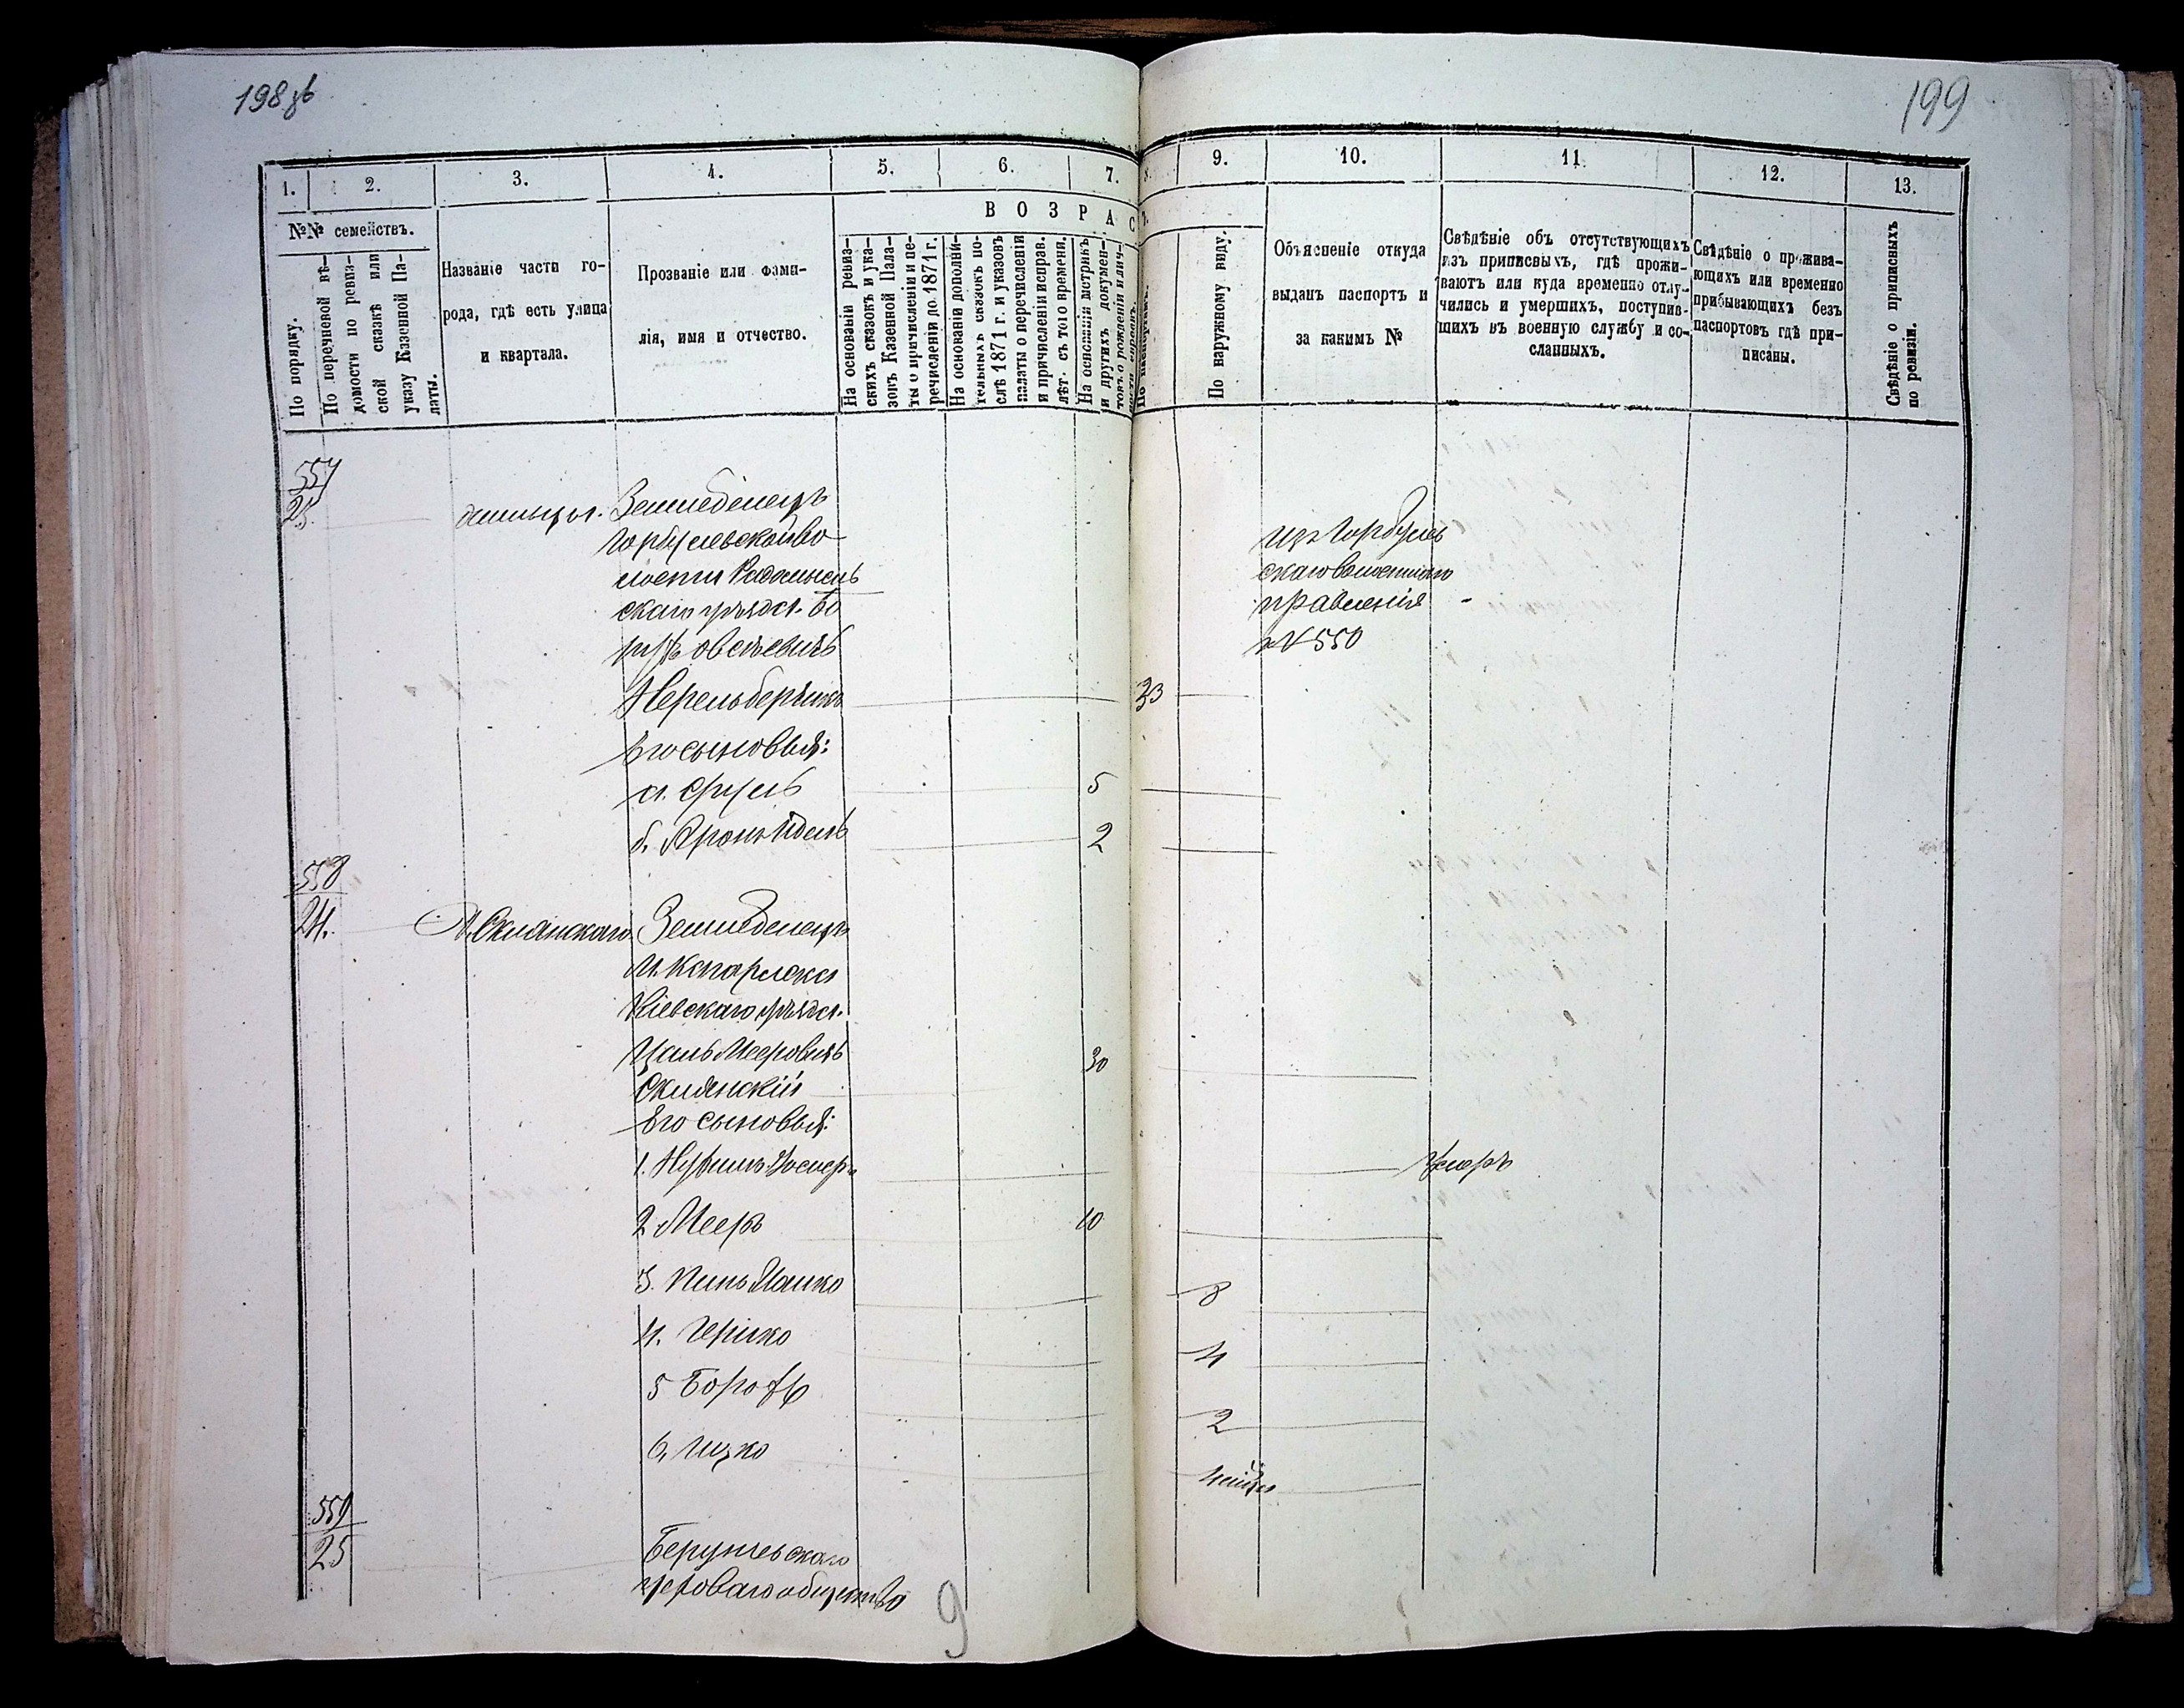 198 об
199
1.
2.
3.
4.
5.
6.
7.
9.
10.
11.
12.
13.
№№ семействъ.
По порядку.
По перечневой вѣ-
домости по ревиз-
ской сказкѣ или
указу Казенной Па-
латы.
Названіе части го-
рода, гдѣ есть улица
и квартала.
Прозваніе или фами-
лія, имя и отчество.
ВОЗРАС
На основаніи ревиз-
скихъ сказокъ и ука-
зовъ Казенной Пала-
ты о причисленіи и пе-
речисленіи до 1871 г.
На основаніи дополни-
тельныхъ сказокъ по-
слѣ 1871 г. и указовъ
палаты о перечисленіи
и причисленіи исправ.
лѣт. съ того времени.
На основаніи метрикъ
и другихъ докумен-
товъ о рожденіи и лич-
По наружному виду.
Объясненіе откуда
выданъ паспортъ и
за какимъ №
Свѣдѣніе объ отсутствующихъ
изъ приписныхъ, гдѣ прожи-
ваютъ или куда временно отлу-
чились и умершихъ, поступив-
шихъ въ военную службу и со-
сланныхъ.
Свѣдѣніе о прожива-
ющихъ или временно
прибывающихъ безъ
паспортовъ гдѣ при-
писаны.
Свѣдѣніе о приписныхъ
по ревизіи.
557
Землѣделецъ
Горбулевской во-
лости Радомысль
скаго уѣзда. Бо
рухъ Овсѣевичъ
33
Его сыновья:
а. Сруль 5
б. Аронъ Идель 2
изъ Горбулев
скаго волостного
правленія
№ 550
558
24.
А. Склянскаго Землѣделецъ
м. Кагарлока
Кіевскаго уѣзда.
Цаль Мееровичъ 30
Склянскій
Его сыновья:
1. умеръ
2 Мееръ 10
3. 8
4. Гершко 4
5 Борохъ 2
6. Ицко
559
25
цеховаго общества
9